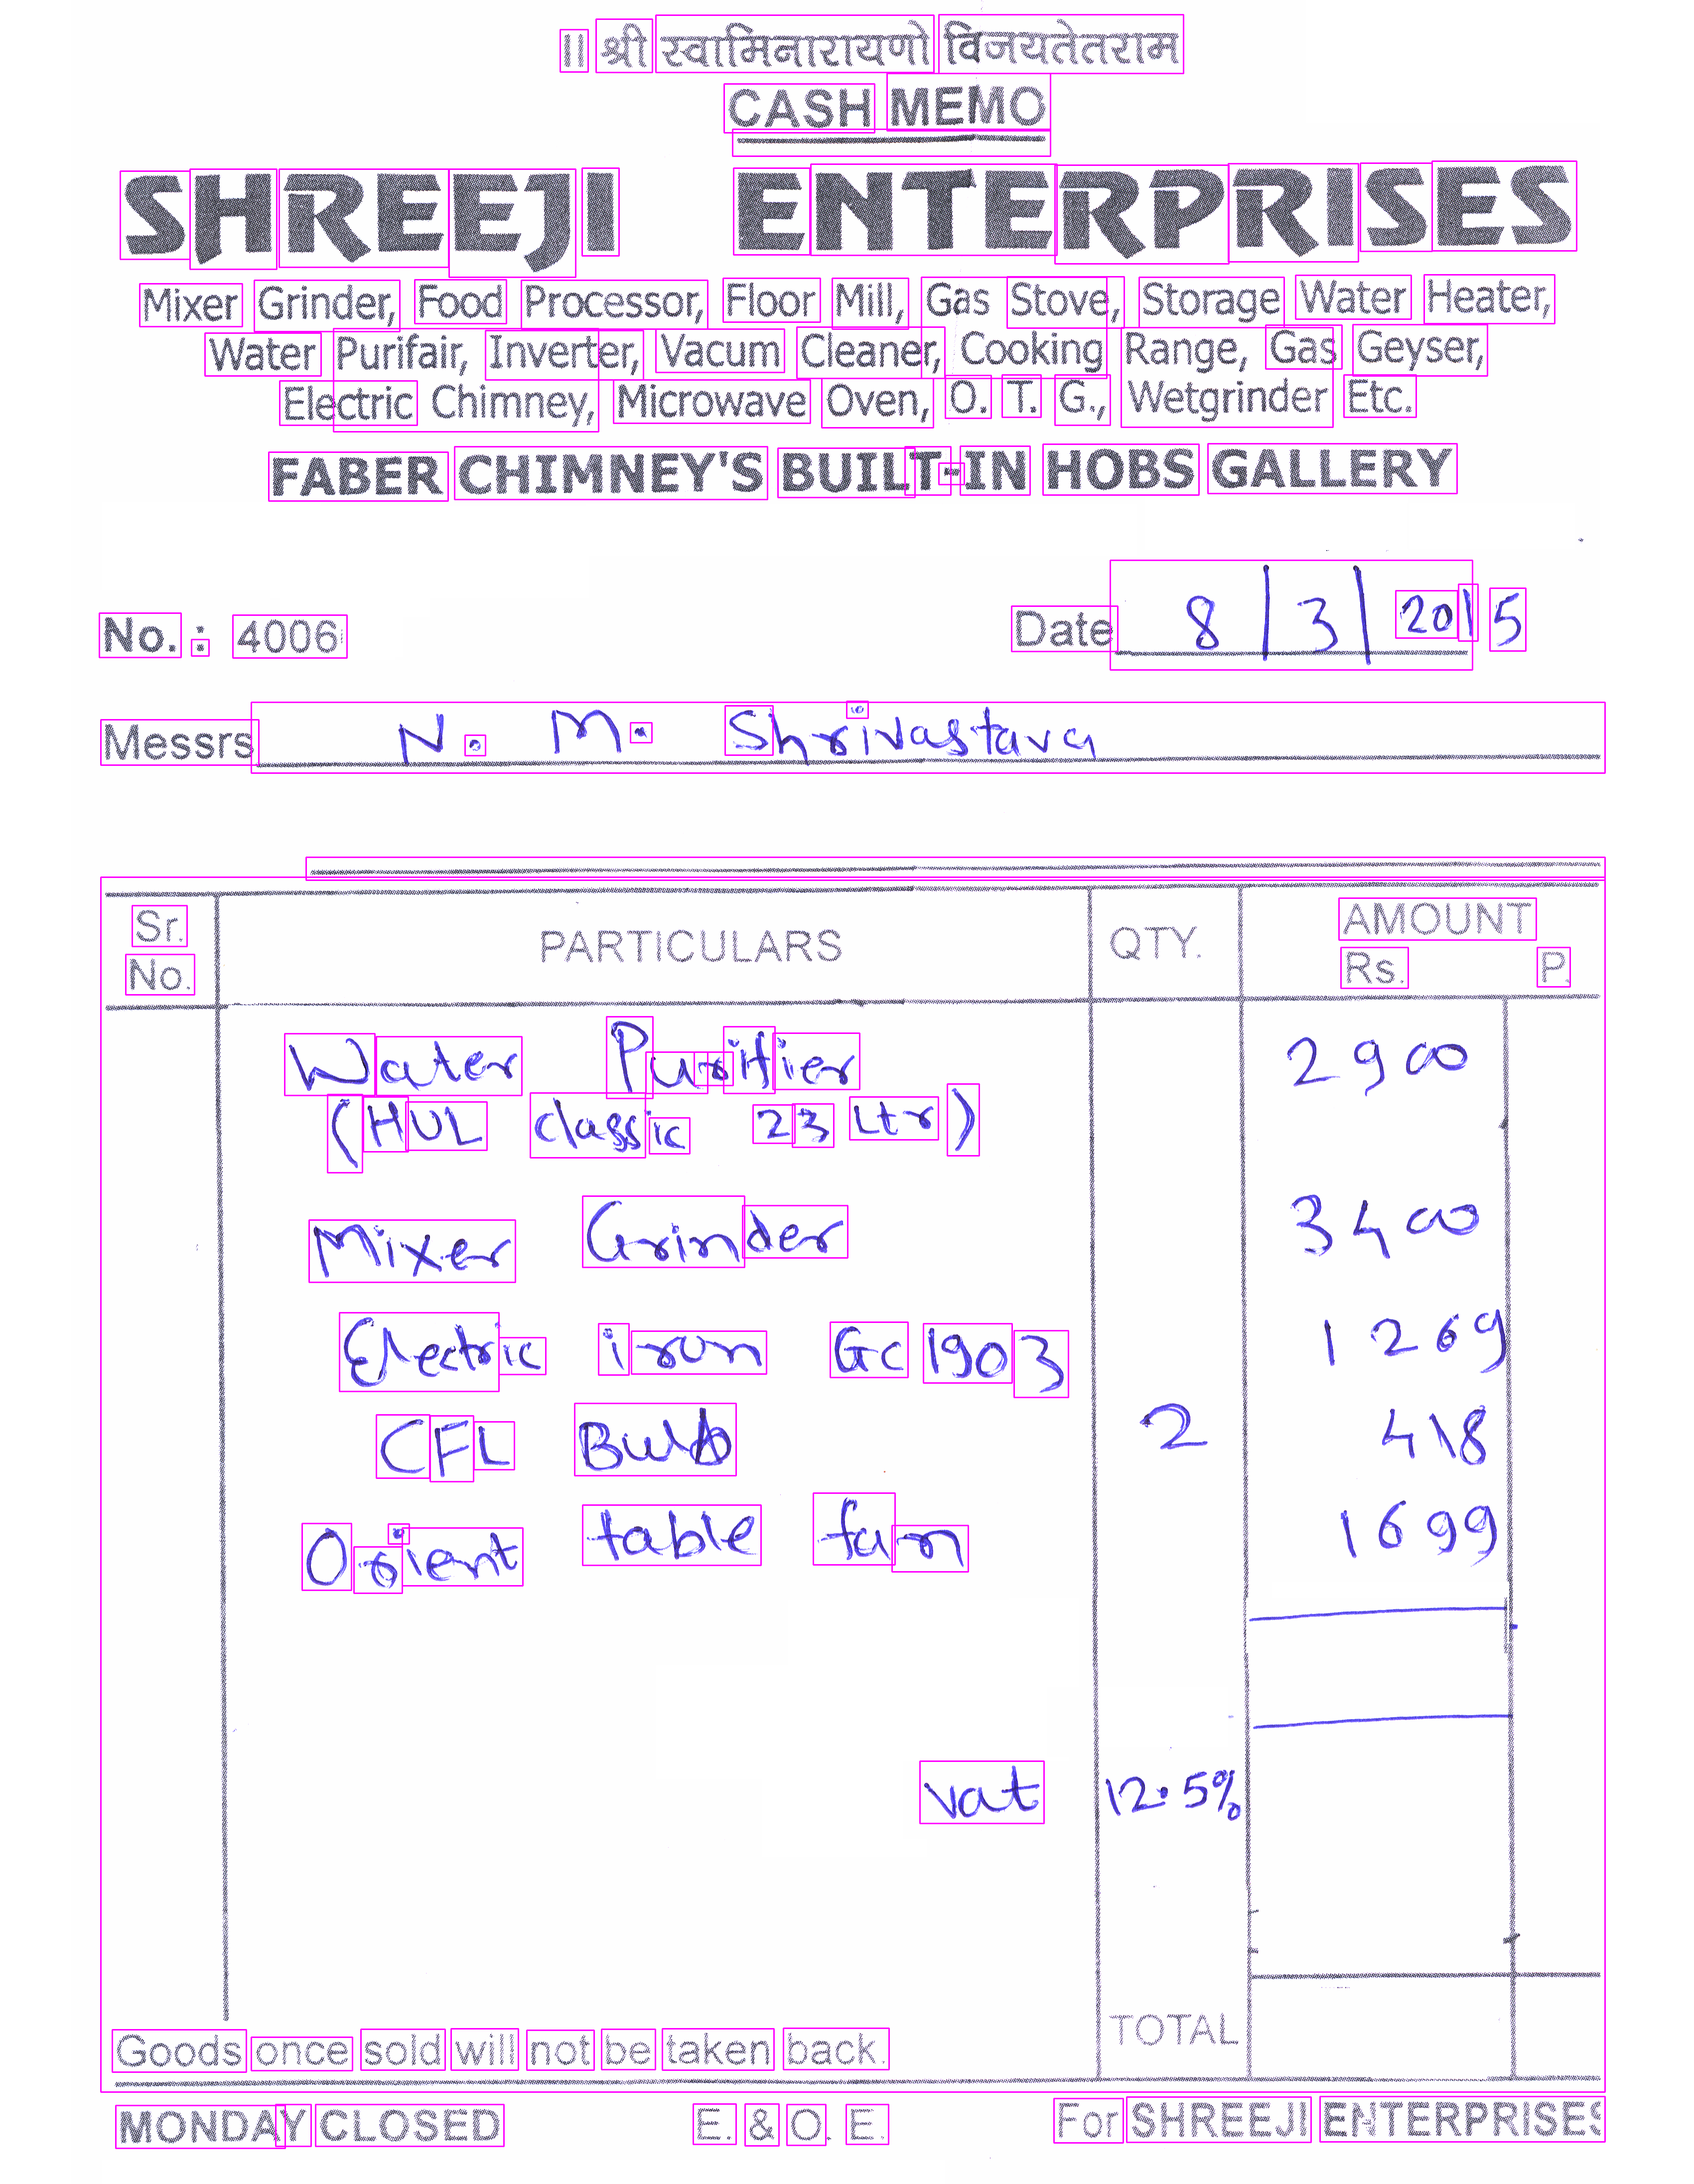 ॥ श्री स्वामिनारायणो विजयतेतराम
CASH MEMO
SHREEJI ENTERPRISES
Mixer Grinder, Food Processor, Floor Mill, Gas Stove, Storage Water Heater,
Water Purifair, Inverter, Vacum Cleaner, Cooking Range, Gas Geyser,
Electric Chimney, Microwave Oven, O. T. G., Wetgrinder Etc.
FABER CHIMNEY'S BUILT-IN HOBS GALLERY
No. : 4006 Date 8/3/2015
Messrs N. M. Shrivastava
Sr. No. PARTICULARS QTY. AMOUNT Rs. P.
Water Purifier 2900
(HUL classic 23 Ltr)
Mixer Grinder 3400
Electric iron GC 1903 1269
CFL Bulb 2 418
Orient table fan 1699
vat 12.5%
TOTAL
Goods once sold will not be taken back.
MONDAY CLOSED E. & O. E. For SHREEJI ENTERPRISES